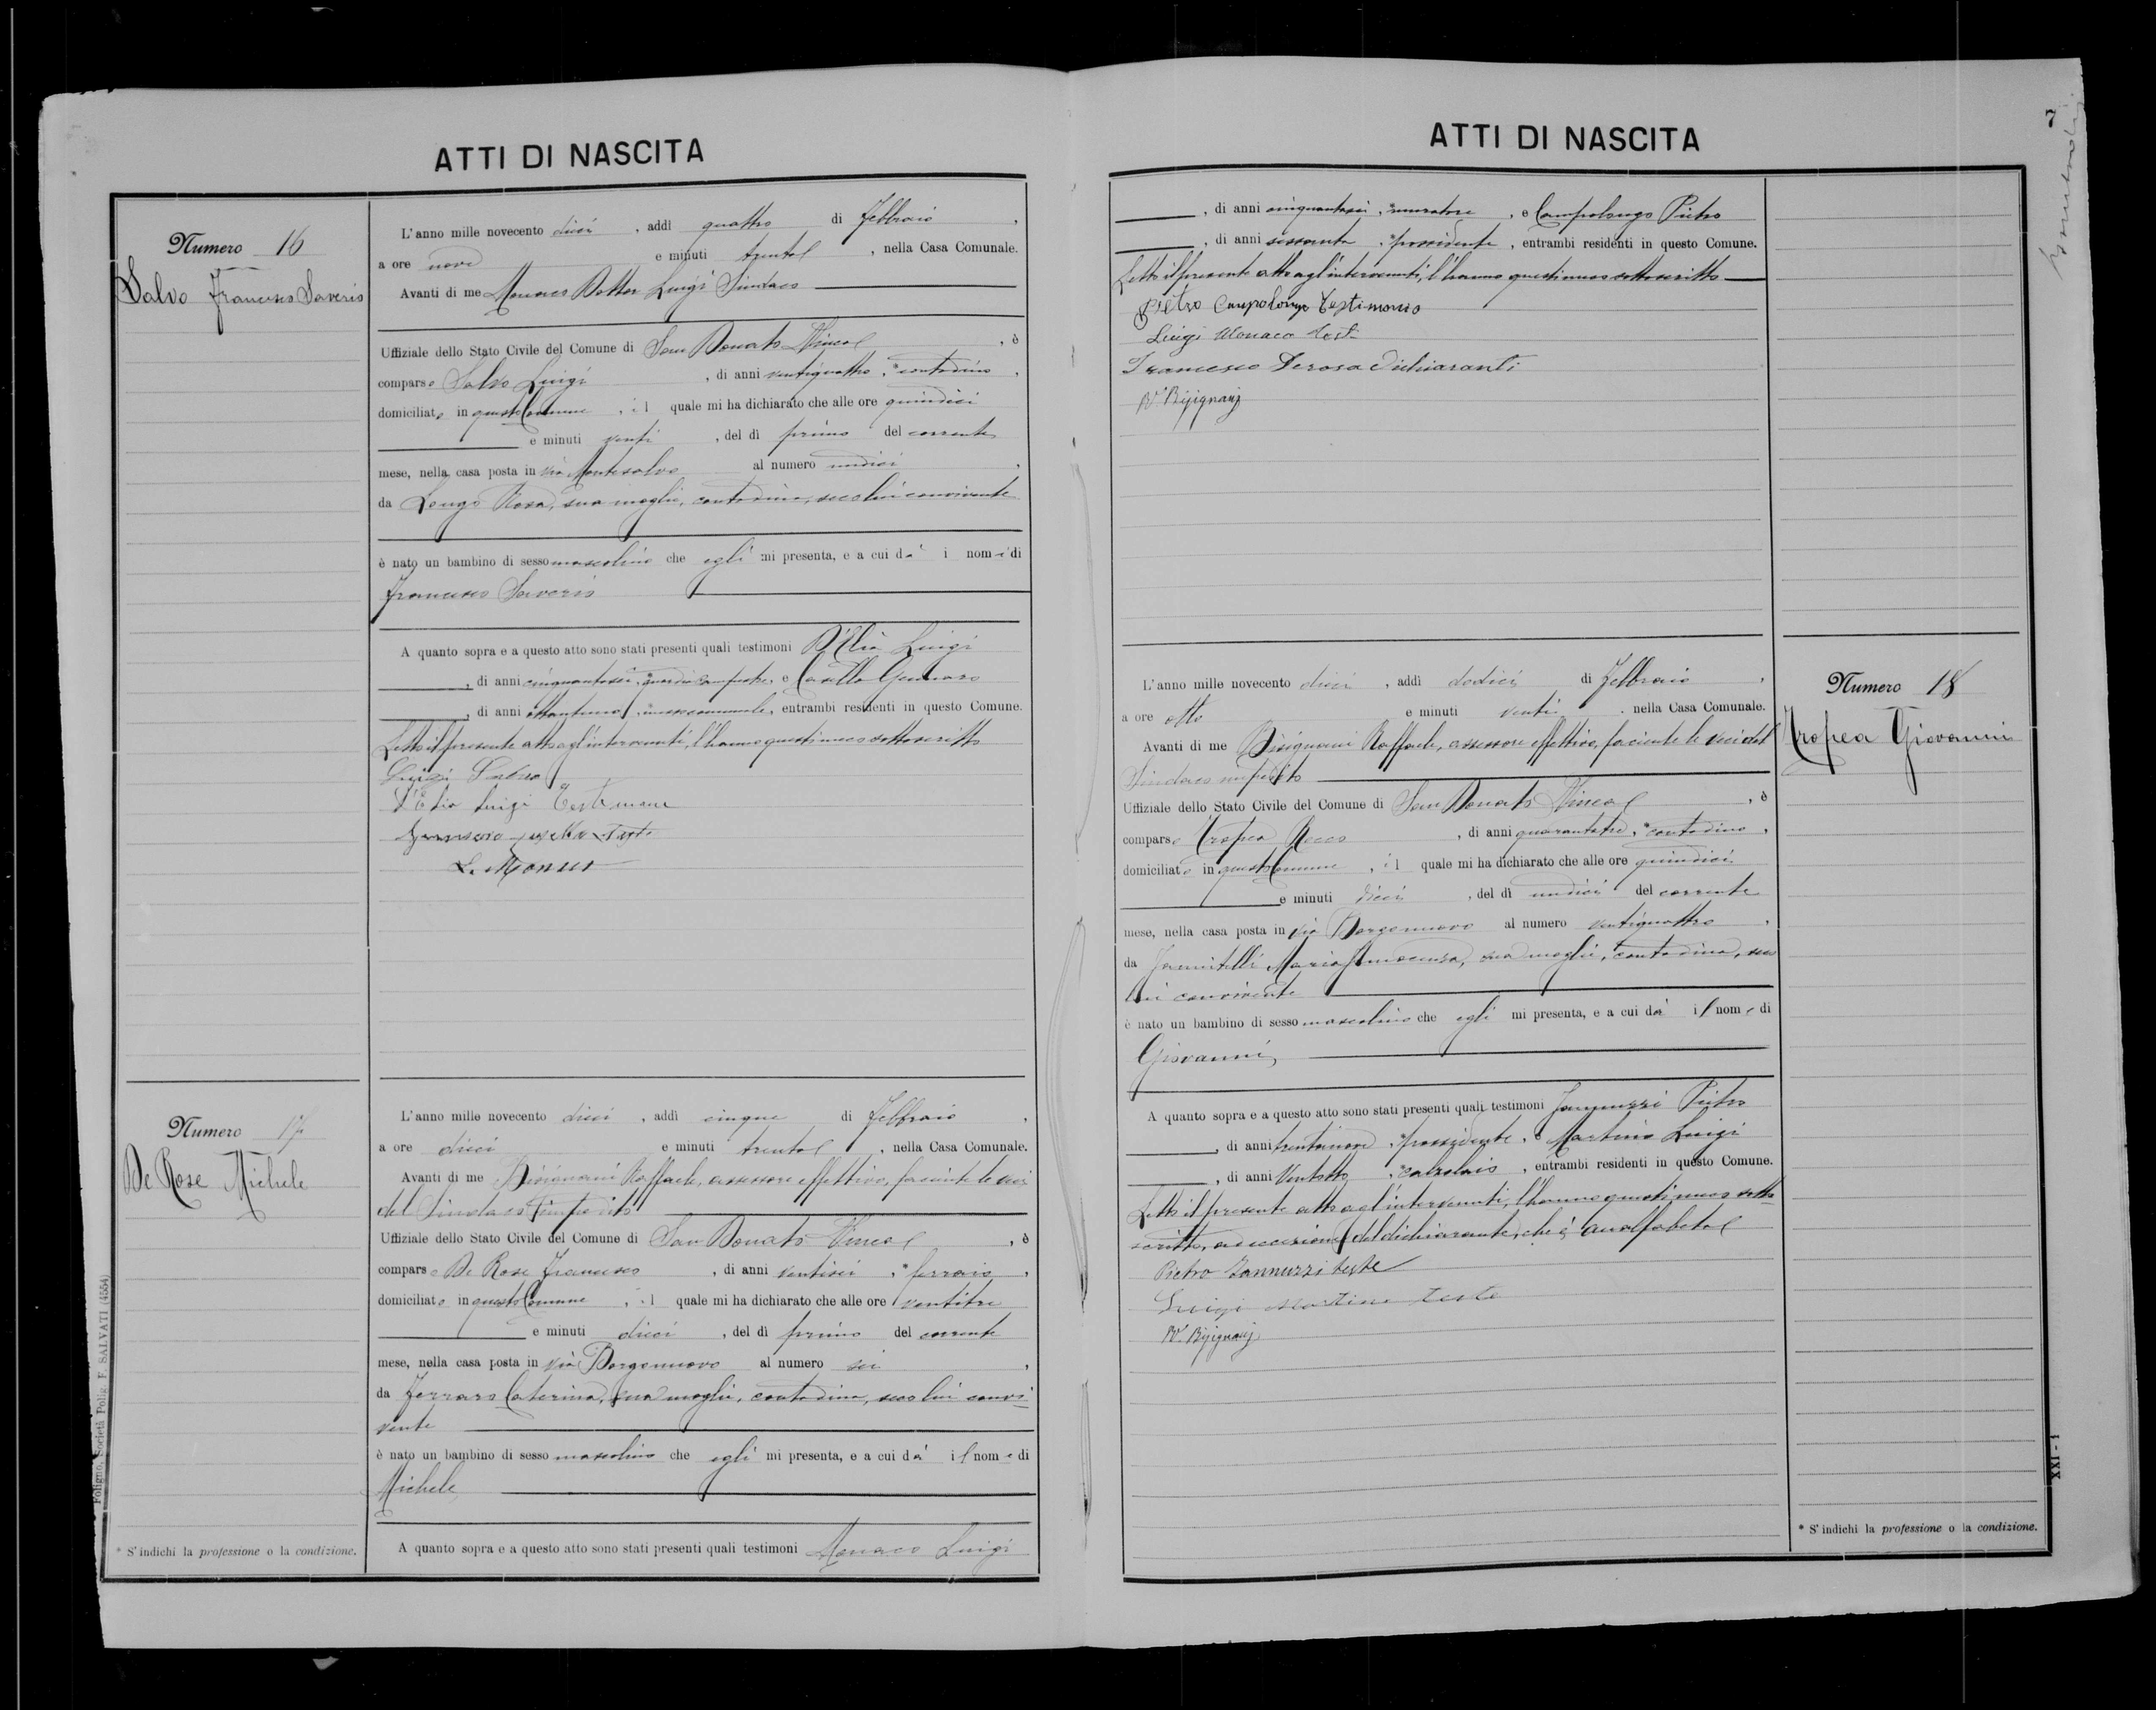 ATTI DI NASCITA
Numero 16
Salvo Francesco Saverio
L'anno mille novecento dieci, addì quattro di Febbraio,
a ore nove e minuti trenta, nella Casa Comunale.
Avanti di me Monaco Dottor Luigi Sindaco
Uffiziale dello Stato Civile del Comune di San Donato Ninea, è
comparso Salvo Luigi, di anni ventiquattro, *contadino,
domiciliato in questo Comune, il quale mi ha dichiarato che alle ore quindici
e minuti venti, del dì primo del corrente
mese, nella casa posta in via Montesalvo al numero undici,
da Longo Rosa, sua moglie, contadina, seco lui convivente
è nato un bambino di sesso mascolino che egli mi presenta, e a cui dà i nomi di
Francesco Saverio
A quanto sopra e a questo atto sono stati presenti quali testimoni D'Elia Luigi
, di anni cinquantasei, *guardia campestre, e Casella Gennaro
, di anni ottantuno, *messo comunale, entrambi residenti in questo Comune.
Letto il presente atto agl'intervenuti, l'hanno questi meco sottoscritto
Luigi Salvo
D'Elia Luigi Testimone
Gennaro Casella Teste
L. Monaco
Numero 17
De Rose Michele
L'anno mille novecento dieci, addì cinque di Febbraio,
a ore dieci e minuti trenta, nella Casa Comunale.
Avanti di me Bisignani Raffaele, assessore effettivo, faciente le veci
del Sindaco impedito
Uffiziale dello Stato Civile del Comune di San Donato Ninea, è
comparso De Rose Francesco, di anni ventisei, *ferraio,
domiciliato in questo Comune, il quale mi ha dichiarato che alle ore ventitre
e minuti dieci, del dì primo del corrente
mese, nella casa posta in via Borgonuovo al numero sei,
da Ferraro Caterina, sua moglie, contadina, seco lui convi-
vente
è nato un bambino di sesso mascolino che egli mi presenta, e a cui dà il nome di
Michele
A quanto sopra e a questo atto sono stati presenti quali testimoni Monaco Luigi
* S'indichi la professione o la condizione.
Foligno, Società Polig. F. SALVATI (4554)
7
ATTI DI NASCITA
, di anni cinquantasei, *muratore, e Campolongo Pietro
, di anni sessanta, *possidente, entrambi residenti in questo Comune.
Letto il presente atto agl'intervenuti, l'hanno questi meco sottoscritto
Pietro Campolongo Testimonio
Luigi Monaco test.
Francesco Derosa Dichiaranti
R. Bisignani
Numero 18
Tropea Giovanni
L'anno mille novecento dieci, addì dodici di Febbraio,
a ore otto e minuti venti, nella Casa Comunale.
Avanti di me Bisignani Raffaele, assessore effettivo, faciente le veci del
Sindaco impedito
Uffiziale dello Stato Civile del Comune di San Donato Ninea, è
comparso Tropea Rocco, di anni quarantatre, *contadino,
domiciliato in questo Comune, il quale mi ha dichiarato che alle ore quindici
e minuti dieci, del dì undici del corrente
mese, nella casa posta in via Borgonuovo al numero ventiquattro,
da Jannitelli Maria Innocenza, sua moglie, contadina, seco
lui convivente
è nato un bambino di sesso mascolino che egli mi presenta, e a cui dà il nome di
Giovanni,
A quanto sopra e a questo atto sono stati presenti quali testimoni Jannuzzi Pietro
, di anni trentanove, *possidente, e Martino Luigi
, di anni ventotto, *calzolaio, entrambi residenti in questo Comune.
Letto il presente atto agl'intervenuti, l'hanno questi meco sotto-
scritto, ad eccezione del dichiarante, che è analfabeta
Pietro Iannuzzi teste
Luigi Martino teste
R. Bisignani
* S'indichi la professione o la condizione.
XXI - 1